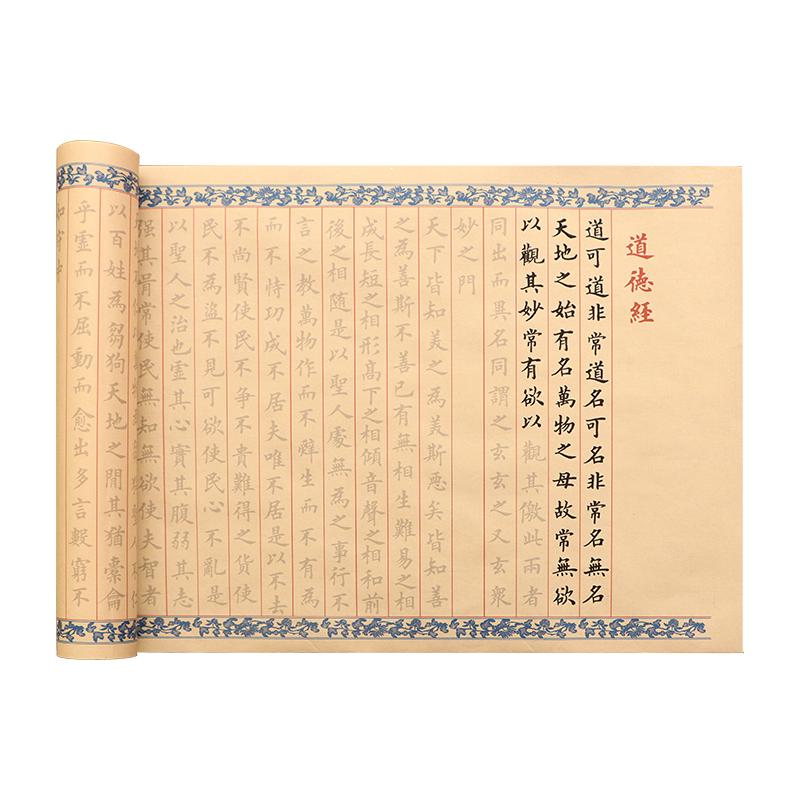 道德經
道可道非常道名可名非常名無名
天地之始有名萬物之母故常無欲
以觀其妙常有欲以觀其徼此兩者
同出而異名同謂之玄玄之又玄衆
妙之門
天下皆知美之為美斯惡矣皆知善
之為善斯不善已有無相生難易之相
成長短之相形髙下之相傾音聲之相和前
後之相随是以聖人處無為之事行不
言之教萬物作而不辭生而不有為
而不恃功成不居夫唯不居是以不去
不尚賢使民不争不貴難得之貨使
民不為盗不見可欲使民心不亂是
以聖人之治也虛其心實其腹弱其志
强其骨常使民無知無欲使夫智者
以百姓為芻狗天地之間其猶橐龠
乎虛而不屈動而愈出多言數窮不